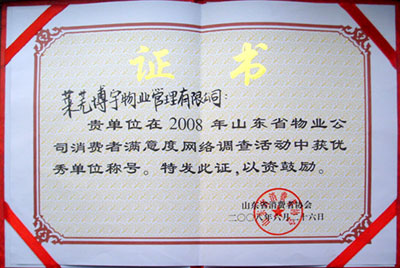 证 书
莱芜博宇物业管理有限公司:
贵单位在2008年山东省物业公
司消费者满意度网络调查活动中获优
秀单位称号。特发此证,以资鼓励。
山东省消费者协会
二〇〇八年六月二十六日